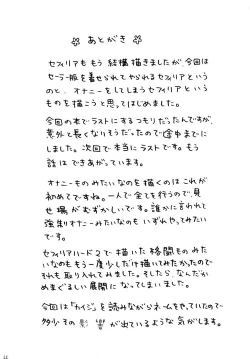 あとがき
セフィリアももう結構描きましたが、今回は
セーラー服を着せられてやられるセフィリアという
のと、オナニーをしてしまうセフィリアという
ものを描こうと思ってはじめました。
今回の本でラストにするつもりだったんですが、
意外と長くなりそうだったので途中までに
しました。次回で本当にラストです。もう
話はできあがっています。
オナニーものみたいなのを描くのはこれが
初めてですね。一人で全てを行うので、見
せ場がむずかしいです。誰かに言われて
強制オナニーみたいなのもいずれやってみたい
です。
セフィリアハード2で描いた格闘ものみた
いなのももう一度少しだけ描いてみたかったので
それも取り入れてみました。そしたら、なんだか
めまぐるしい展開になってしまいました。
今回は「カイジ」を読みながらネームをやっていたので
多少その影響が出ているような気がします。